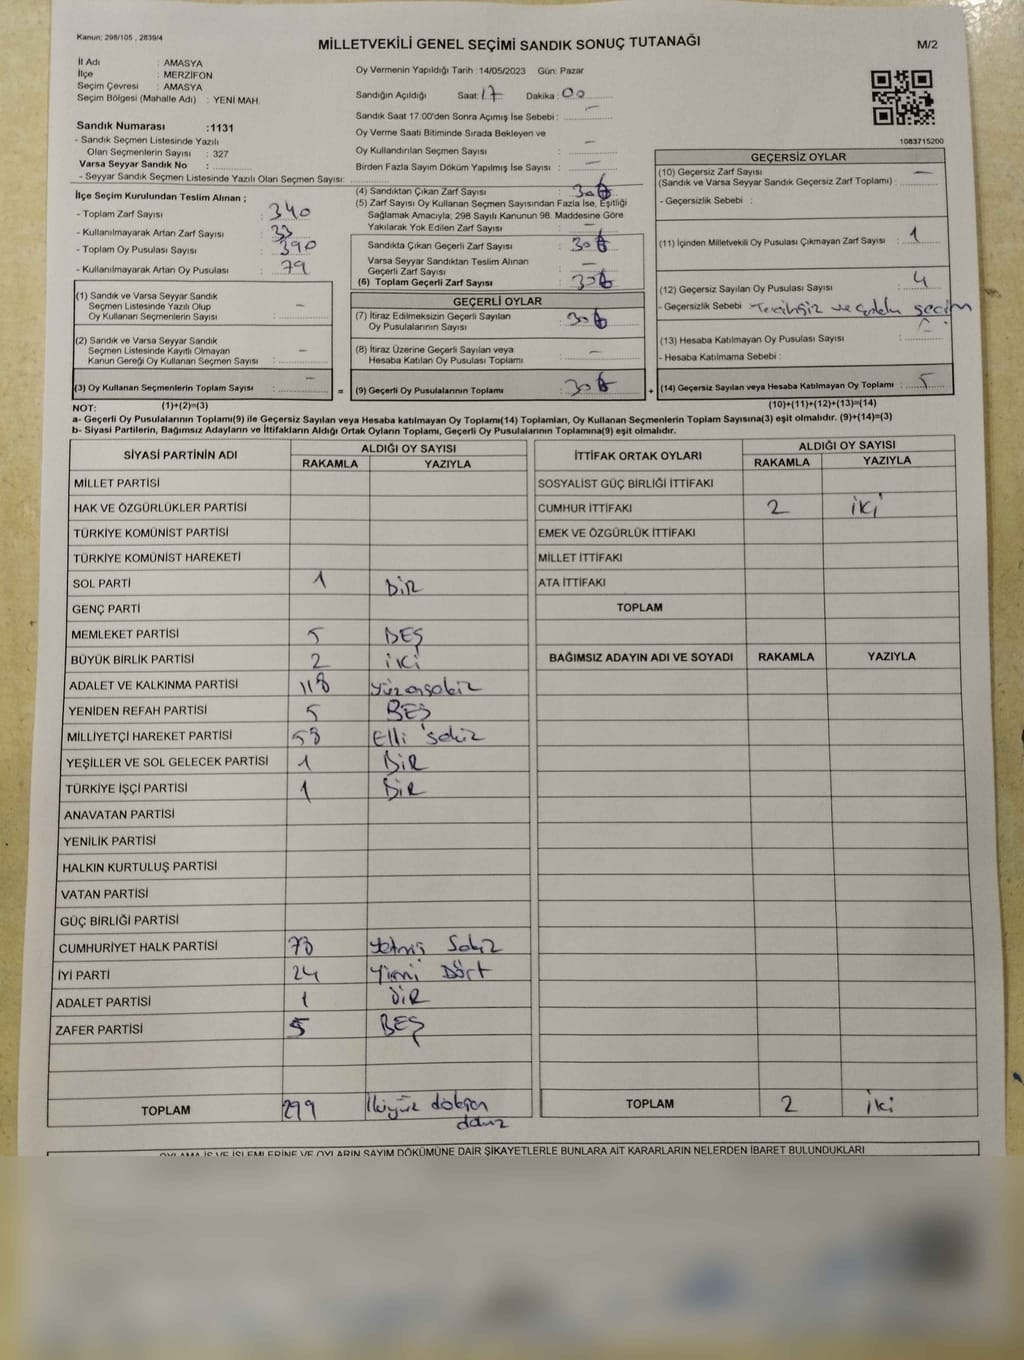 Kanun: 298/105 , 2839/4
MİLLETVEKİLİ GENEL SEÇİMİ SANDIK SONUÇ TUTANAĞI
M/2
İl Adı : AMASYA
İlçe : MERZİFON
Seçim Çevresi : AMASYA
Seçim Bölgesi (Mahalle Adı) : YENİ MAH.
Sandık Numarası :1131
- Sandık Seçmen Listesinde Yazılı
Olan Seçmenlerin Sayısı : 327
Varsa Seyyar Sandık No :
- Seyyar Sandık Seçmen Listesinde Yazılı Olan Seçmen Sayısı:
Oy Vermenin Yapıldığı Tarih :14/05/2023 Gün: Pazar
Sandığın Açıldığı Saat: 17 Dakika : 00
Sandık Saat 17:00'den Sonra Açımış İse Sebebi : —
Oy Verme Saati Bitiminde Sırada Bekleyen ve
Oy Kullandırılan Seçmen Sayısı : —
Birden Fazla Sayım Döküm Yapılmış İse Sayısı : —
1083715200
İlçe Seçim Kurulundan Teslim Alınan ;
- Toplam Zarf Sayısı : 340
- Kullanılmayarak Artan Zarf Sayısı : 33
- Toplam Oy Pusulası Sayısı : 390
- Kullanılmayarak Artan Oy Pusulası : 79
(1) Sandık ve Varsa Seyyar Sandık
Seçmen Listesinde Yazılı Olup
Oy Kullanan Seçmenlerin Sayısı : —
(2) Sandık ve Varsa Seyyar Sandık
Seçmen Listesinde Kayıtlı Olmayan
Kanun Gereği Oy Kullanan Seçmen Sayısı : —
(3) Oy Kullanan Seçmenlerin Toplam Sayısı : —
(4) Sandıktan Çıkan Zarf Sayısı : 306
(5) Zarf Sayısı Oy Kullanan Seçmen Sayısından Fazla İse, Eşitliği
Sağlamak Amacıyla; 298 Sayılı Kanunun 98. Maddesine Göre
Yakılarak Yok Edilen Zarf Sayısı : —
Sandıkta Çıkan Geçerli Zarf Sayısı : 306
Varsa Seyyar Sandıktan Teslim Alınan
Geçerli Zarf Sayısı : —
(6) Toplam Geçerli Zarf Sayısı : 306
GEÇERLİ OYLAR
(7) İtiraz Edilmeksizin Geçerli Sayılan
Oy Pusulalarının Sayısı : 306
(8) İtiraz Üzerine Geçerli Sayılan veya
Hesaba Katılan Oy Pusulası Toplamı : —
= (9) Geçerli Oy Pusulalarının Toplamı : 306 +
GEÇERSİZ OYLAR
(10) Geçersiz Zarf Sayısı —
(Sandık ve Varsa Seyyar Sandık Geçersiz Zarf Toplamı) :
- Geçersizlik Sebebi :
(11) İçinden Milletvekili Oy Pusulası Çıkmayan Zarf Sayısı : 1
(12) Geçersiz Sayılan Oy Pusulası Sayısı : 4
- Geçersizlik Sebebi : Tercihsiz ve çoklu seçim
(13) Hesaba Katılmayan Oy Pusulası Sayısı :
- Hesaba Katılmama Sebebi :
(14) Geçersiz Sayılan veya Hesaba Katılmayan Oy Toplamı : 5
NOT: (1)+(2)=(3) (10)+(11)+(12)+(13)=(14)
a- Geçerli Oy Pusulalarının Toplamı(9) ile Geçersiz Sayılan veya Hesaba katılmayan Oy Toplamı(14) Toplamları, Oy Kullanan Seçmenlerin Toplam Sayısına(3) eşit olmalıdır. (9)+(14)=(3)
b- Siyasi Partilerin, Bağımsız Adayların ve İttifakların Aldığı Ortak Oyların Toplamı, Geçerli Oy Pusulalarının Toplamına(9) eşit olmalıdır.
SİYASİ PARTİNİN ADI ALDIĞI OY SAYISI
RAKAMLA YAZIYLA
MİLLET PARTİSİ
HAK VE ÖZGÜRLÜKLER PARTİSİ
TÜRKİYE KOMÜNİST PARTİSİ
TÜRKİYE KOMÜNİST HAREKETİ
SOL PARTİ 1 BİR
GENÇ PARTİ
MEMLEKET PARTİSİ 5 BEŞ
BÜYÜK BİRLİK PARTİSİ 2 iki
ADALET VE KALKINMA PARTİSİ 118 yüzonsekiz
YENİDEN REFAH PARTİSİ 5 BEŞ
MİLLİYETÇİ HAREKET PARTİSİ 58 Elli sekiz
YEŞİLLER VE SOL GELECEK PARTİSİ 1 BİR
TÜRKİYE İŞÇİ PARTİSİ 1 BİR
ANAVATAN PARTİSİ
YENİLİK PARTİSİ
HALKIN KURTULUŞ PARTİSİ
VATAN PARTİSİ
GÜÇ BİRLİĞİ PARTİSİ
CUMHURİYET HALK PARTİSİ 78 Yetmiş Sekiz
İYİ PARTİ 24 Yirmi Dört
ADALET PARTİSİ 1 BİR
ZAFER PARTİSİ 5 BEŞ
TOPLAM 299 İkiyüz doksan
dokuz
İTTİFAK ORTAK OYLARI ALDIĞI OY SAYISI
RAKAMLA YAZIYLA
SOSYALİST GÜÇ BİRLİĞİ İTTİFAKI
CUMHUR İTTİFAKI 2 iki
EMEK VE ÖZGÜRLÜK İTTİFAKI
MİLLET İTTİFAKI
ATA İTTİFAKI
TOPLAM
BAĞIMSIZ ADAYIN ADI VE SOYADI RAKAMLA YAZIYLA
TOPLAM 2 iki
OYLAMA İŞ VE İŞLEMLERİNE VE OYLARIN SAYIM DÖKÜMÜNE DAİR ŞİKAYETLERLE BUNLARA AİT KARARLARIN NELERDEN İBARET BULUNDUKLARI